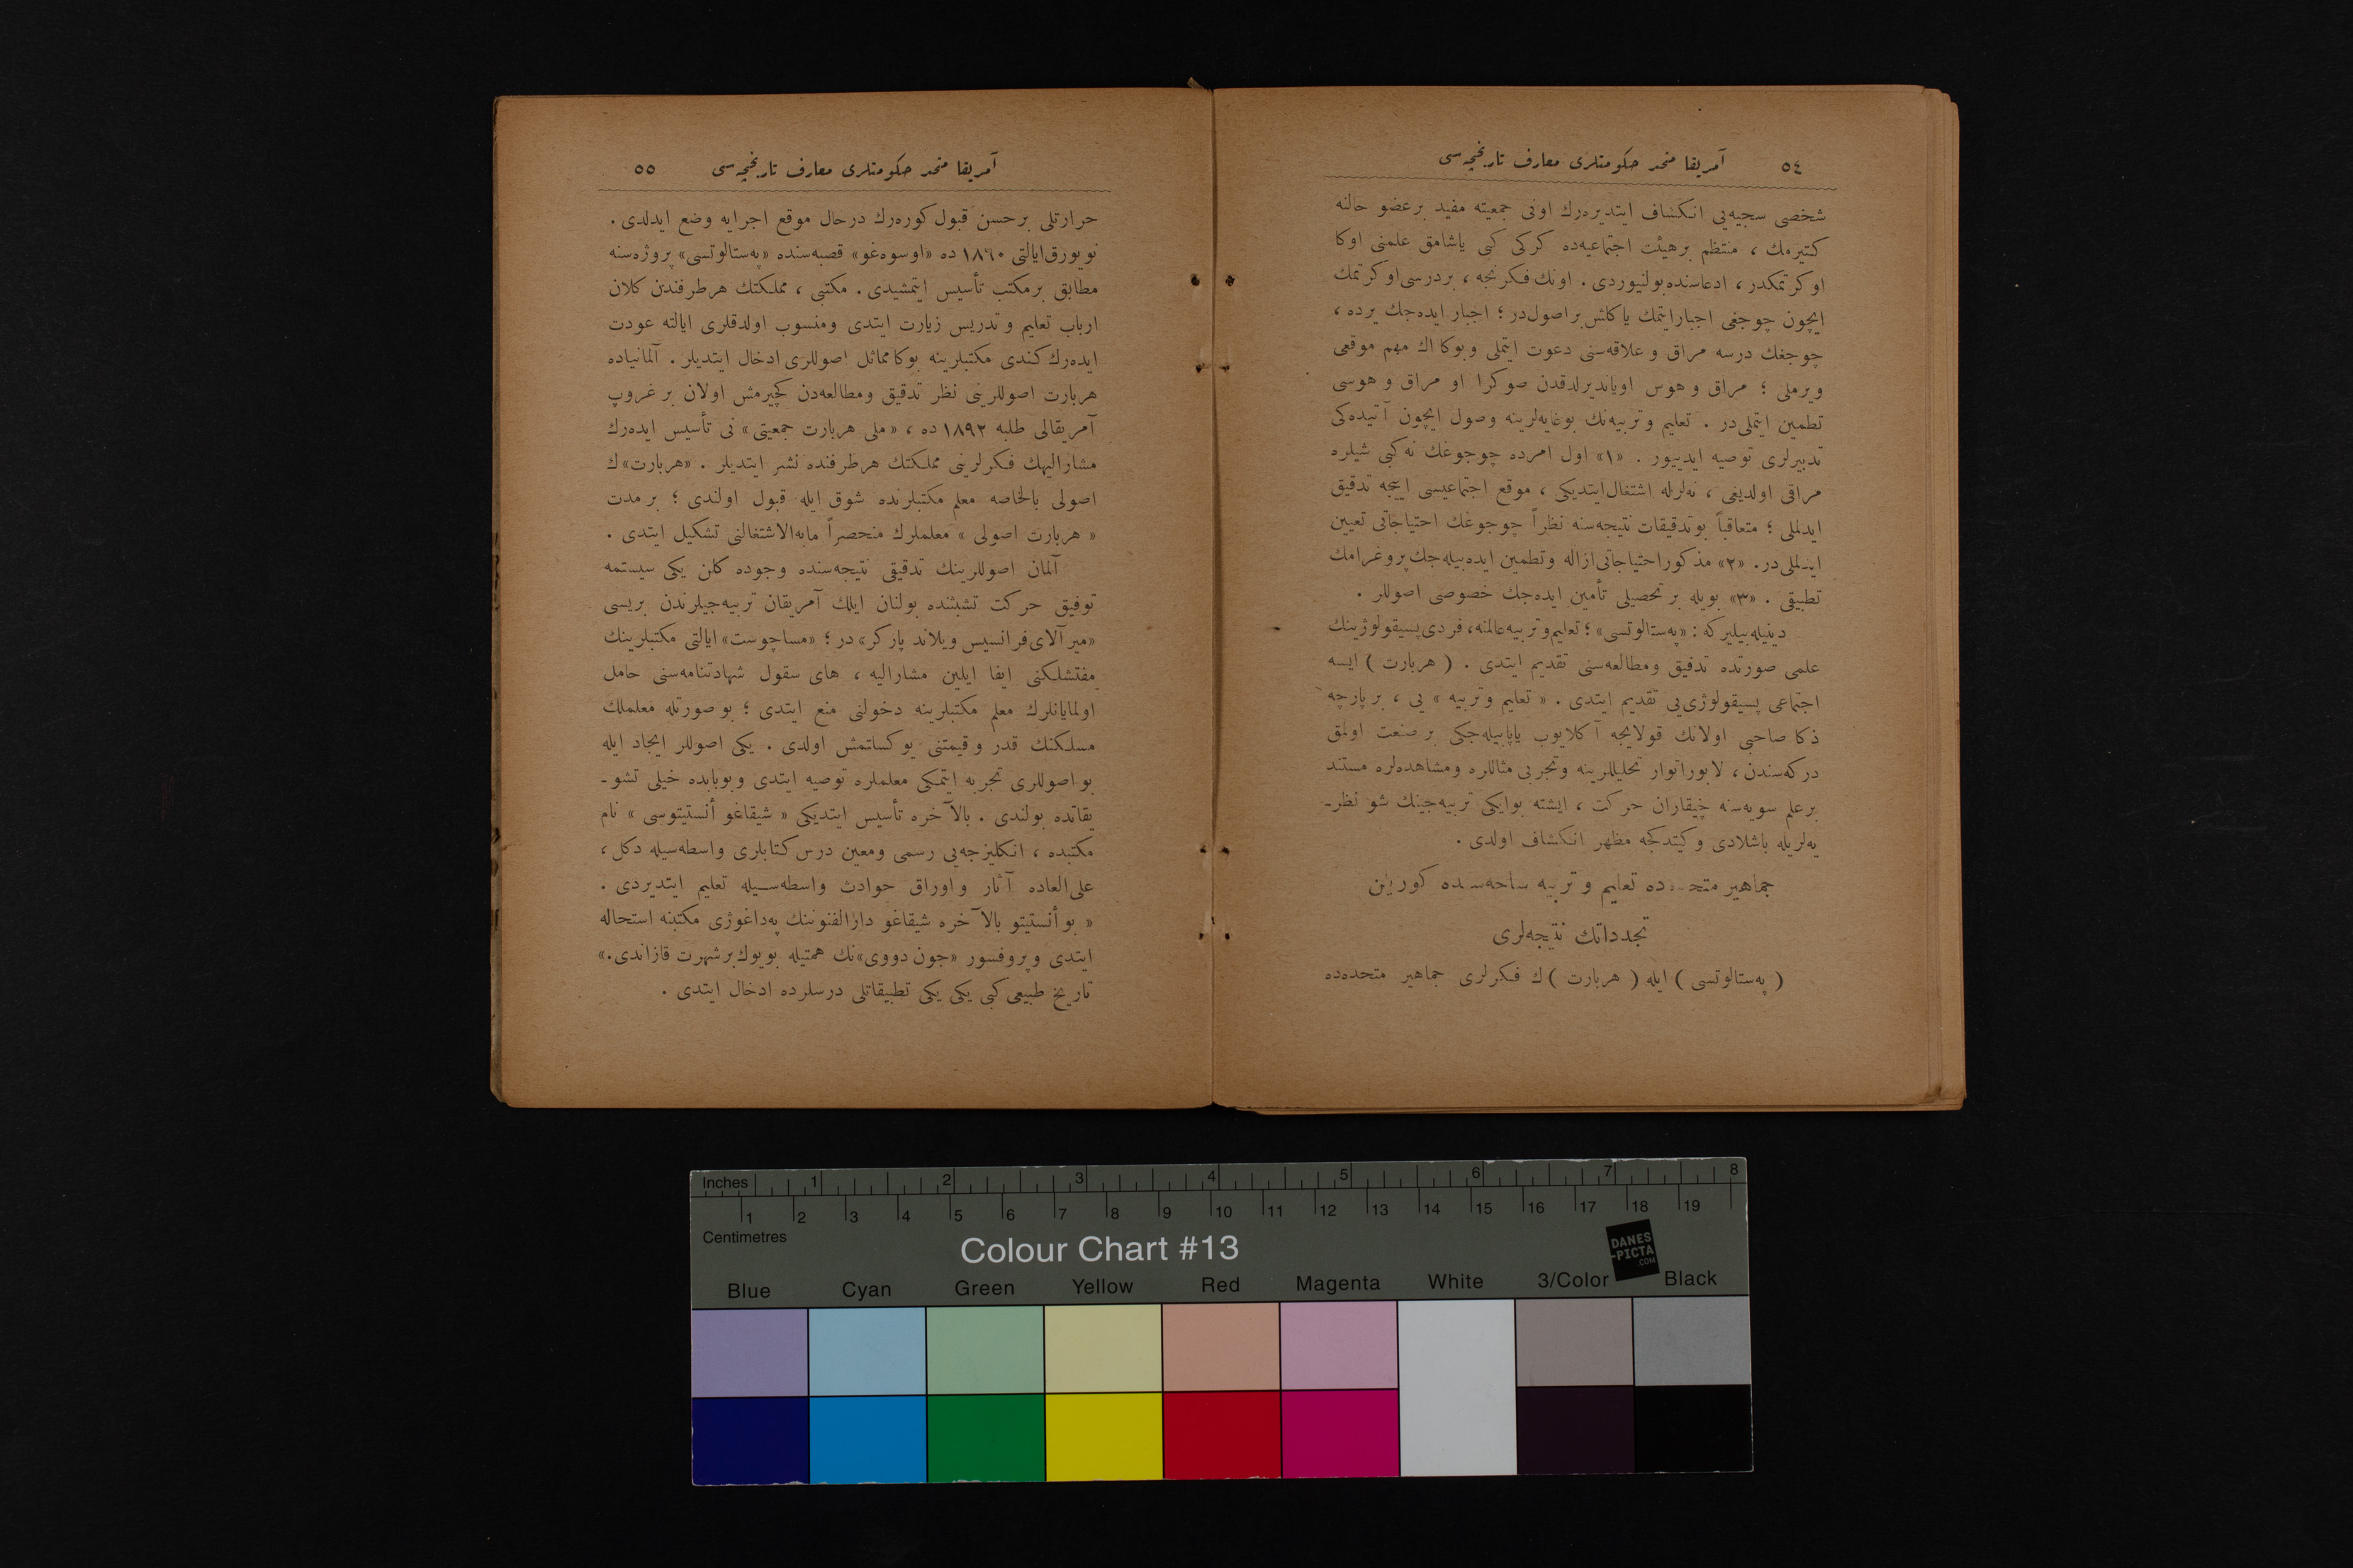 ٥٤ آمریقا متحد حكومتلری معارف تاریخچه‌سی
شخصی سجیه‌یی انکشاف ایتدیره‌رك اونی جمعیته مفید برعضو حالنه
کتیرمك ، منتظم برهیئت اجتماعیه‌ده کرکی کبی یاشامق علمنی اوکا
اوکرتمکدر ، ادعاسنده بولنیوردی . اونك فکرنجه ، بردرسی اوکرتمك
ایچون چوجغی اجبار ایتمك یاکلش براصولدر ؛ اجبار ایده‌جك یرده ،
چوجغك درسه مراق و علاقه‌سنی دعوت ایتملی وبوکا اك مهم موقعی
ویرملی ؛ مراق و هوس اویاندیرلدقدن صوکرا او مراق و هوسی
تطمین ایتملی‌در . تعلیم وتربیه‌نك بوغایه‌لرینه وصول ایچون آتیده‌کی
تدبیرلری توصیه ایدییور . «١» اول امرده چوجوغك نه کبی شیلره
مراقی اولدیغی ، نه‌لرله اشتغال ایتدیکی ، موقع اجتماعیسی اییجه تدقیق
ایدلملی ؛ متعاقباً بوتدقیقات نتیجه‌سنه نظراً چوجوغك احتیاجاتی تعیین
ایدلملی‌در. «٢» مذکور احتیاجاتی ازاله وتطمین ایده‌بیله‌جك پروغرامك
تطبیقی . «٣» بویله بر تحصیلی تأمین ایده‌جك خصوصی اصوللر .
دینیله‌بیلیرکه : «په‌ستالوتسی» ؛ تعلیم وتربیه عالمنه ، فردی پسیقولوژینك
علمی صورتده تدقیق ومطالعه‌سنی تقدیم ایتدی . ( هربارت ) ایسه
اجتماعی پسیقولوژی‌یی تقدیم ایتدی . « تعلیم وتربیه » یی ، بر پارچه
ذکا صاحبی اولانك قولایجه آکلایوب یاپابیله‌جکی بر صنعت اولمق
درکه‌سندن ، لابوراتوار تحلیللرینه وتجربی مثاللره ومشاهده‌لره مستند
برعلم سویه‌سنه چیقاران حرکت ، ایشته بوایکی تربیه‌جینك شو نظر-
یه‌لریله باشلادی وکیتدکجه مظهر انکشاف اولدی .
جماهیر متحده‌ده تعلیم و تربیه ساحه‌سنده کورین
تجدداتك نتیجه‌لری
( په‌ستالوتسی ) ایله ( هربارت ) ك فکرلری جماهیر متحده‌ده
آمریقا متحد حكومتلری معارف تاریخچه‌سی ٥٥
حرارتلی برحسن قبول کوره‌رك درحال موقع اجرایه وضع ایدلدی .
نویورق ایالتی ١٨٦٠ ده «اوسوه‌غو» قصبه‌سنده «په‌ستالوتسی» پروژه‌سنه
مطابق برمکتب تأسیس ایتمشیدی . مکتبی ، مملکتك هرطرفندن کلان
ارباب تعلیم و تدریس زیارت ایتدی ومنسوب اولدقلری ایالته عودت
ایده‌رك کندی مکتبلرینه بوکا مماثل اصوللری ادخال ایتدیلر . آلمانیاده
هربارت اصوللرینی نظر تدقیق ومطالعه‌دن کچیرمش اولان بر غروپ
آمریقالی طلبه ١٨٩٢ ده ، «ملی هربارت جمعیتی» نی تأسیس ایده‌رك
مشارالیهك فکرلرینی مملکتك هرطرفنده نشر ایتدیلر . «هربارت» ك
اصولی بالخاصه معلم مکتبلرنده شوق ایله قبول اولندی ؛ بر مدت
« هربارت اصولی » معلملرك منحصراً مابه‌الاشتغالنی تشکیل ایتدی .
آلمان اصوللرینك تدقیقی نتیجه‌سنده وجوده کلن یکی سیستمه
توفیق حرکت تشبثنده بولنان ایلك آمریقان تربیه‌جیلرندن بریسی
«میر آلای فرانسیس ویلاند پارکر» در ؛ «مساچوست» ایالتی مکتبلرینك
مفتشلکنی ایفا ایلین مشارالیه ، های سقول شهادتنامه‌سنی حامل
اولمایانلرك معلم مکتبلرینه دخولنی منع ایتدی ؛ بو صورتله معلملك
مسلکنك قدر و قیمتنی یوکساتمش اولدی . یکی اصوللر ایجاد ایله
بو اصوللری تجربه ایتمکی معلملره توصیه ایتدی وبوبابده خیلی تشو-
یقاتده بولندی . بالآخره تأسیس ایتدیکی « شیقاغو أنستیتوسی » نام
مکتبده ، انکلیزجه‌یی رسمی ومعین درس کتابلری واسطه‌سیله دکل ،
علی‌العاده آثار و اوراق حوادث واسطه‌سیله تعلیم ایتدیردی .
« بو أنستیتو بالآخره شیقاغو دارالفنوننك په‌داغوژی مکتبنه استحاله
ایتدی وپروفسور «جون دووی» نك همتیله بویوك برشهرت قازاندی.»
تاریخ طبیعی کبی یکی یکی تطبیقاتلی درسلرده ادخال ایتدی .
Inches 1 2 3 4 5 6 7 8
1 2 3 4 5 6 7 8 9 10 11 12 13 14 15 16 17 18 19
Centimetres
Colour Chart #13
DANES
-PICTA
.COM
Blue Cyan Green Yellow Red Magenta White 3/Color Black